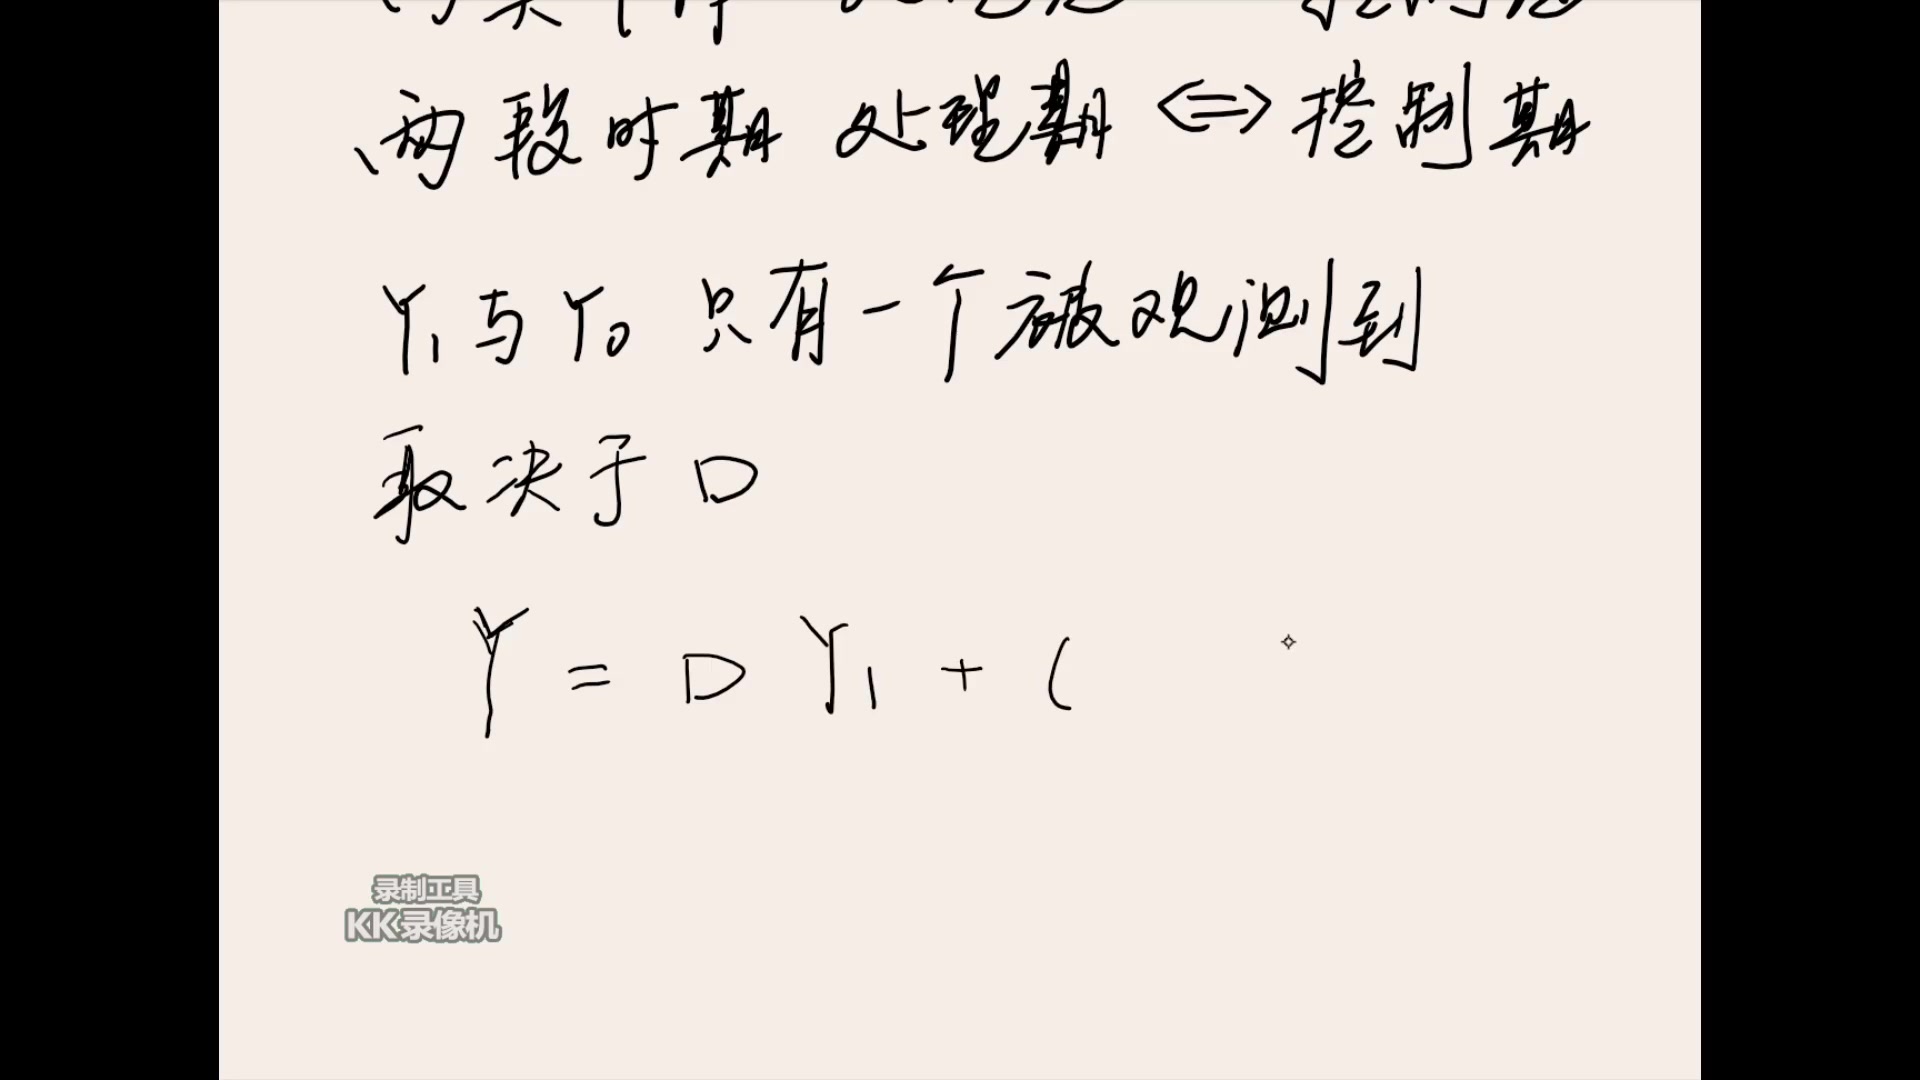 两段时期 处理期 <=> 控制期
Y₁与Y₀ 只有一个被观测到
取决于D
Y = D Y₁ + (
录制工具
KK录像机